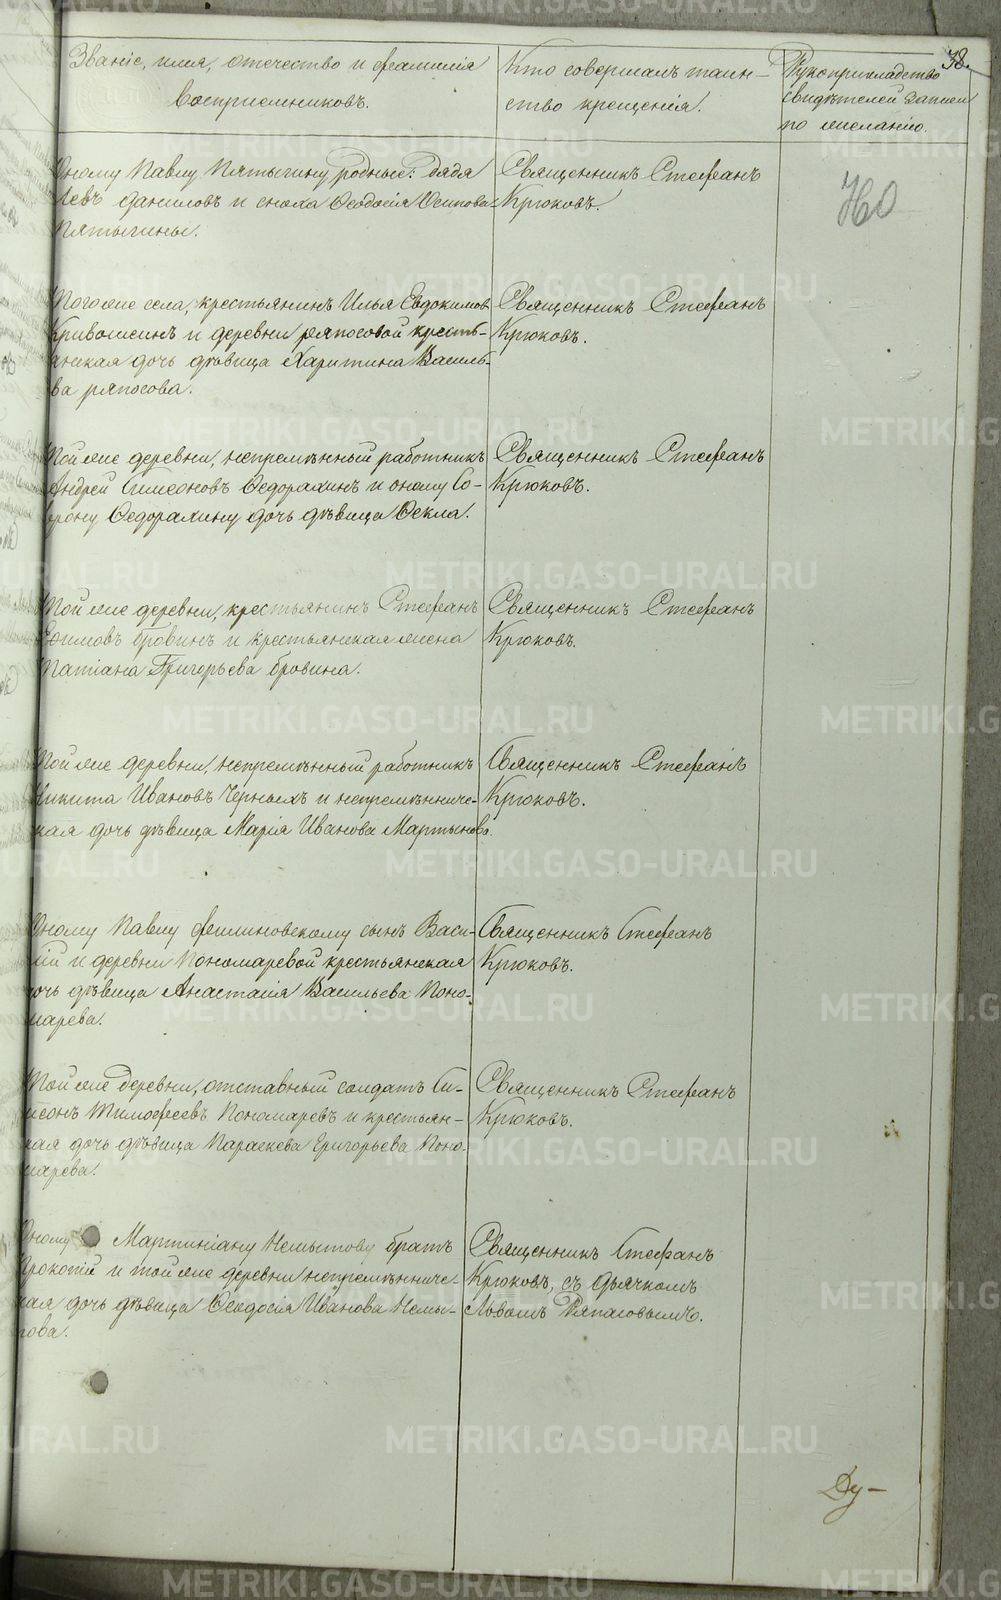 38.
Званіе, имя, отчество и фамилія
воспріемниковъ.
Кто совершалъ таин-
ство крещенія.
Рукоприкладство
свидѣтелей записи
по желанію.
760
Оному Павлу Пятыгину родные: дядя
Левъ Даниловъ и сноха Феодосія Осипова
Пятыгины.
Священникъ Стефанъ
Крюковъ.
Того же села, крестьянинъ Илья Евдокимовъ
Кривошеинъ и деревни ряпосовой кресть-
янская дочь дѣвица Харитина Василь-
ва ряпосова.
Священникъ Стефанъ
Крюковъ.
Той же деревни, непремѣнный работникъ
Андрей Симеоновъ Федорахинъ и оному Со-
фрону Федорахину дочь дѣвица Фекла.
Священникъ Стефанъ
Крюковъ.
Той же деревни, крестьянинъ Стефанъ
Ефимовъ бровинъ и крестьянская жена
Татіана Григорьева бровина.
Священникъ Стефанъ
Крюковъ.
Той же деревни, непремѣнный работникъ
Никита Ивановъ Черныхъ и непремѣнниче-
ская дочь дѣвица Марія Иванова Мартынова.
Священникъ Стефанъ
Крюковъ.
Оному Павлу Филиновскому сынъ Васи-
лій и деревни Пономаревой крестьянская
дочь дѣвица Анастасія Васильева Поно-
марева.
Священникъ Стефанъ
Крюковъ.
Той же деревни, отставный солдатъ Си-
меонъ Тимофеевъ Пономаревъ и крестьян-
ская дочь дѣвица Параскева Григорьева Поно-
марева.
Священникъ Стефанъ
Крюковъ.
Оному Мартиніану Немытову братъ
Прокопій и той же деревни непремѣнниче-
ская дочь дѣвица Феодосія Иванова Немы-
това.
Священникъ Стефанъ
Крюковъ, съ дьячкомъ
Львомъ Ряпасовымъ.
Ду-
METRIKI.GASO-URAL.RU